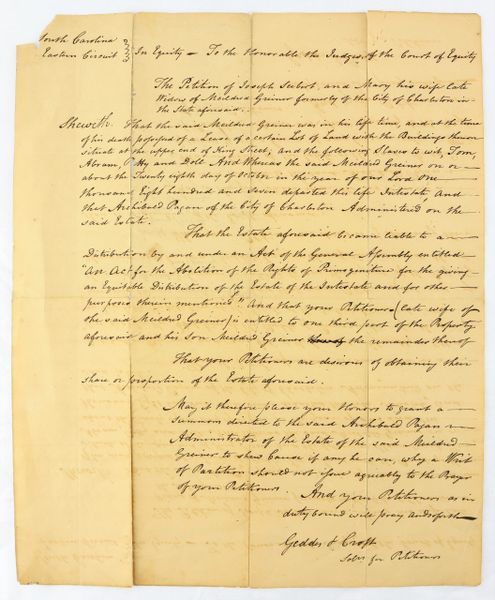 South Carolina
Eastern Circuit } In Equity — To the Honorable the Judges of the Court of Equity
The Petition of Joseph and Mary his wife late
Widow of Greiner formerly of the City of Charleston in
the State aforesaid
Sheweth. That the said Greiner was in his life time, and at the time
of his death possessed of a Lease of a certain Lot of Land with the Buildings thereon
situate at the upper end of King Street, and the following Slaves to wit, Tom,
Abram, and Doll. And Whereas the said Greiner on or
about the Twenty eighth day of October in the year of our Lord One
thousand Eight hundred and Seven departed this life Intestate, and
that Archibald Pagan of the City of Charleston Administered on the
said Estate.
That the Estate aforesaid became liable to a
Distribution by and under an Act of the General Assembly entitled
"An Act for the Abolition of the Rights of Primogeniture for the giving
an Equitable Distribution of the Estate of the Intestate and for other
purposes therein mentioned" And that your Petitioner (late wife of
the said Greiner) is entitled to one third part of the Property
aforesaid and his Son Greiner the remainder thereof
That your Petitioners are desirous of obtaining their
share or proportion of the Estate aforesaid.
May it therefore please your Honors to grant a
Summons directed to the said Archibald Pagan
Administrator of the Estate of the said
Greiner to shew Cause if any he can, why a Writ
of Partition should not issue agreeably to the Prayer
of your Petitioners. And your Petitioners as in
duty bound will pray and so forth
Geddes & Croft
Solrs for Petitioners